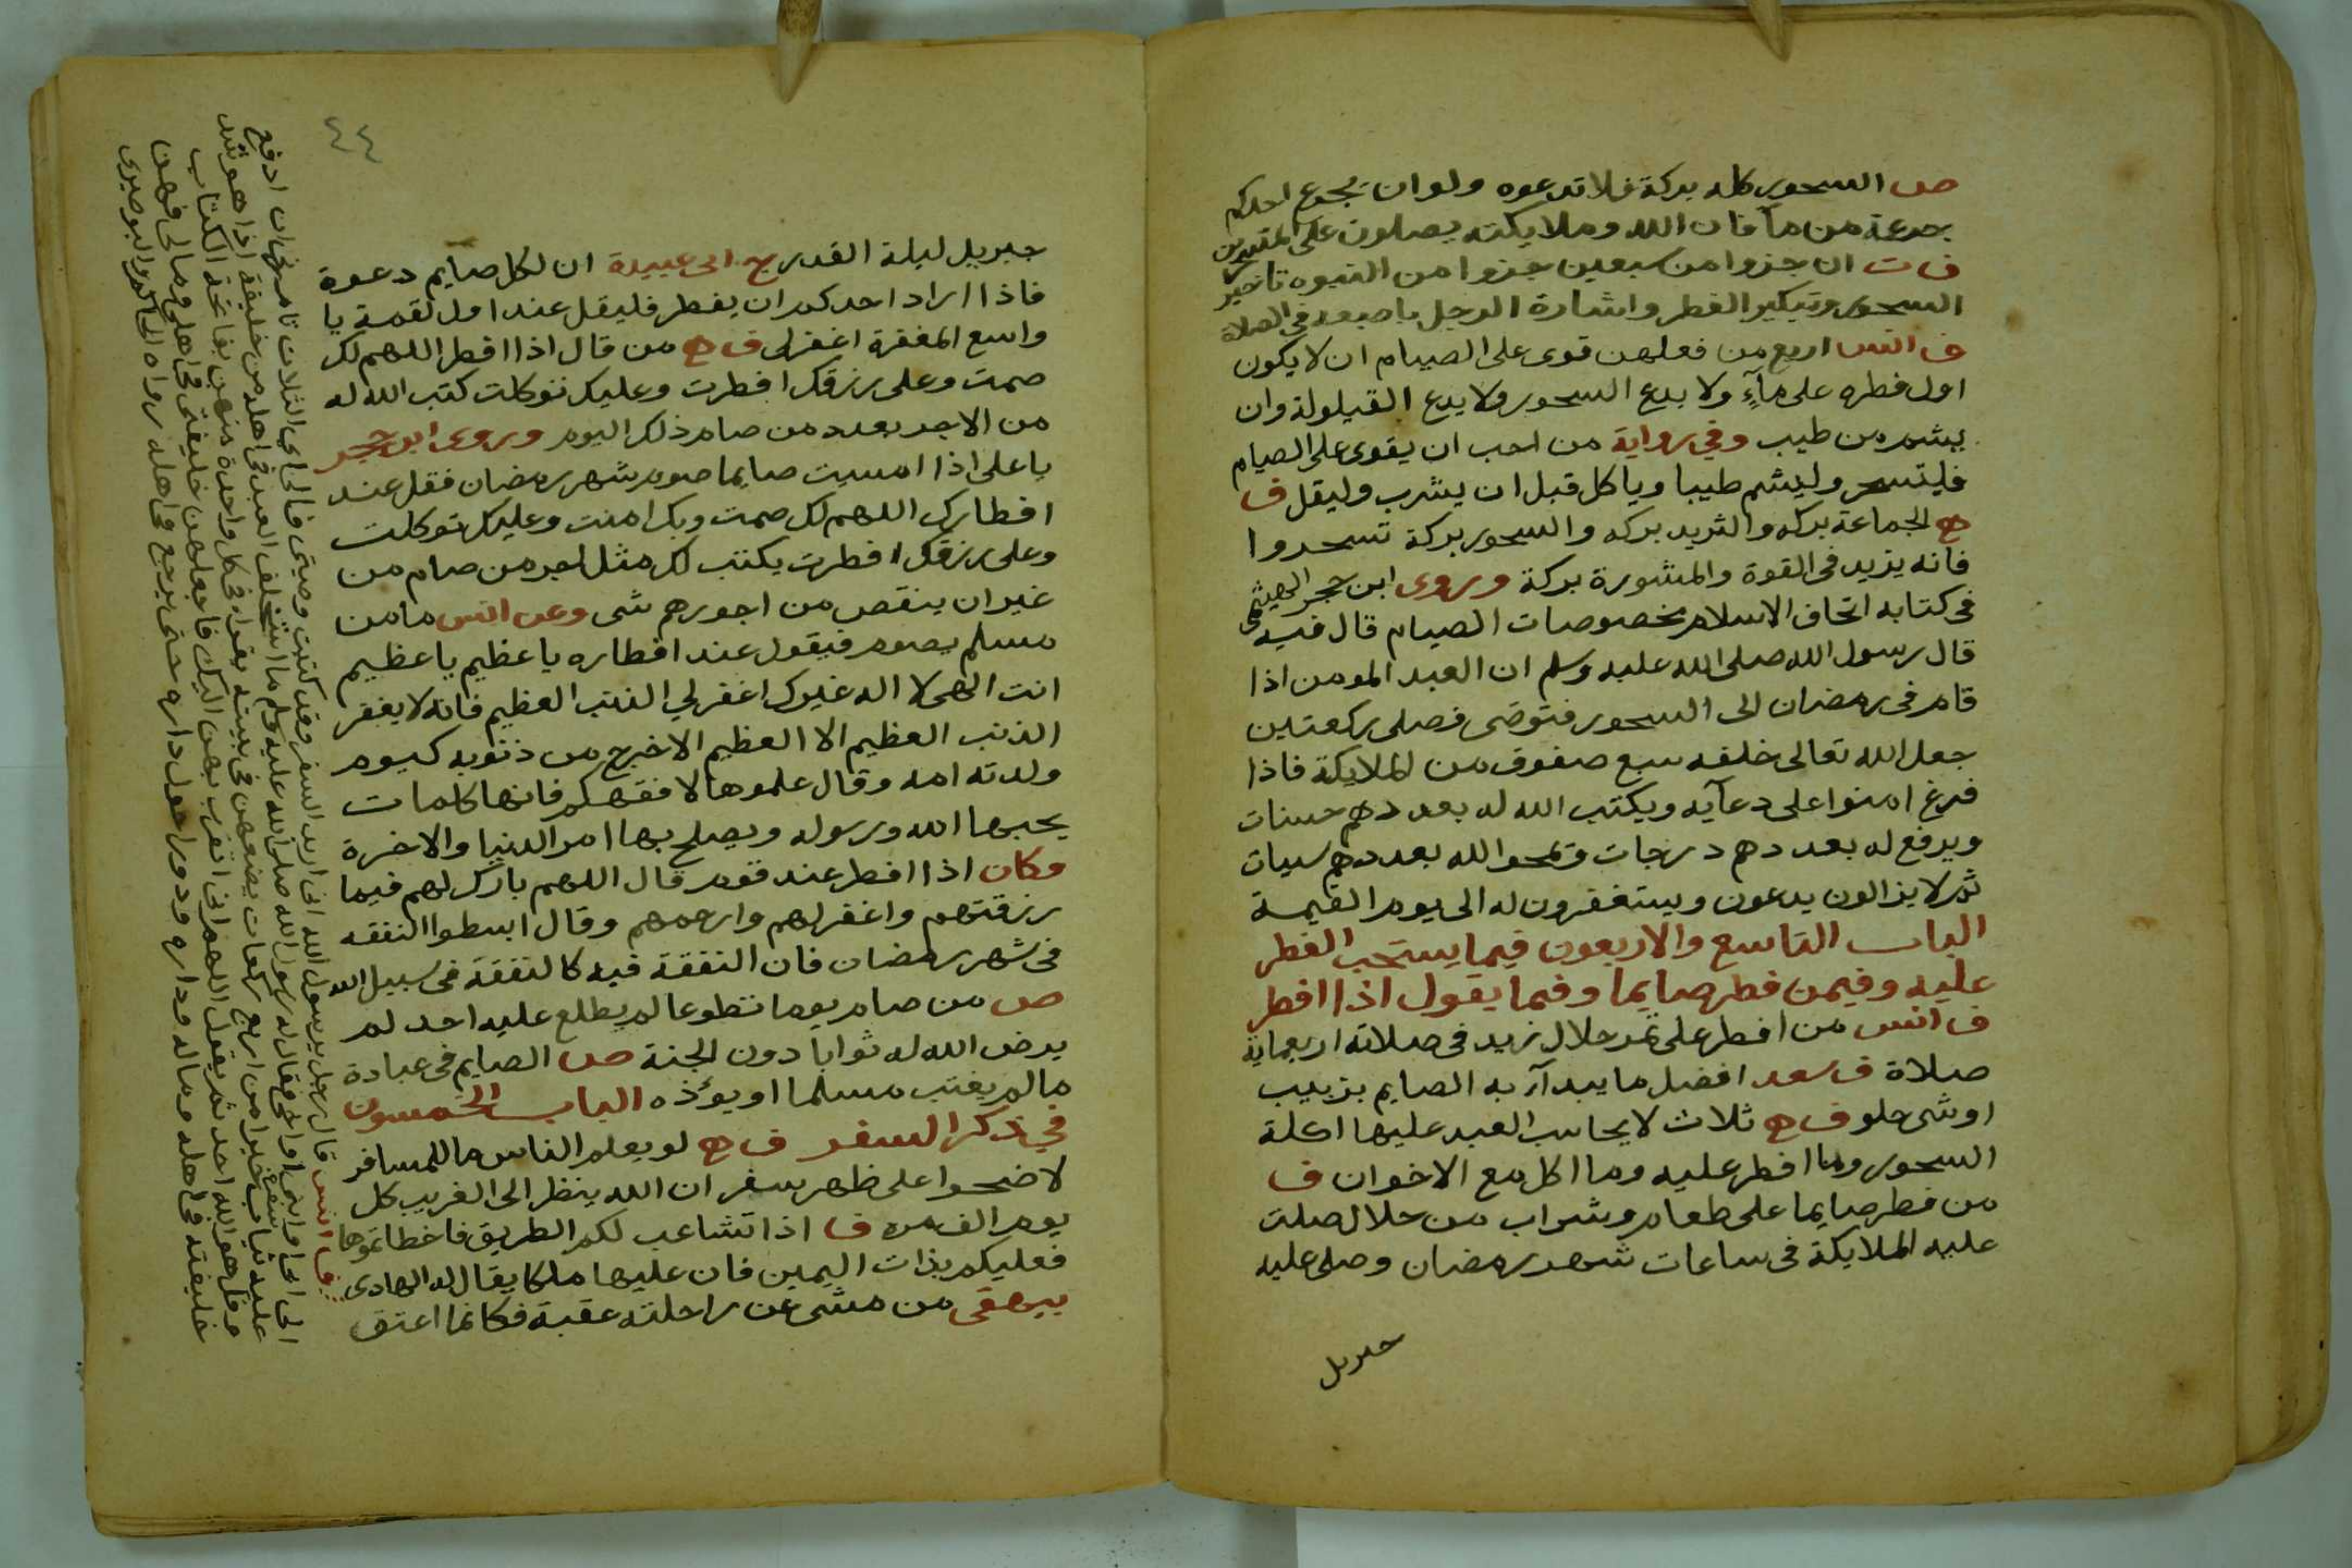 ص السحور كله بركة فلا تدعوه ولو ان يجرع احدكم
جرعة من مآ فان الله وملايكته يصلون على المتسحرين
ف ت ان جزوا من سبعين جزوا من النبوه تاخير
السحور وتبكير الفطر واشارة الرجل باصبعه في الصلاة
ف انس اربع من فعلهن قوى على الصيام ان لا يكون
اول فطره على مآءٍ ولا يدع السحور ولا يدع القيلولة وان
يشم من طيب وفي رواية من احب ان يقوى على الصيام
فليتسحر وليشم طيبا وياكل قبل ان يشرب وليقل ف
ھ الجماعة بركه والثريد بركه والسحور بركة تسحروا
فانه يزيد في القوة والمشورة بركة وروى ابن حجر الهيثمي
في كتابه اتحاف الاسلام بخصوصات الصيام قال فيه
قال رسول الله صلى الله عليه وسلم ان العبد المومن اذا
قام في رمضان الى السحور فتوضى فصلى ركعتين
جعل الله تعالى خلفه سبع صفوف من الملايكة فاذا
فرغ امنوا على دعآيه ويكتب الله له بعددهم حسنات
ويرفع له بعددهم درجات ويمحوا لله بعددهم سيات
ثم لا يزالون يدعون ويستغفرون له الى يوم القيمة
الباب التاسع والاربعون فيما يستحب الفطر
عليه وفيمن فطر صايما وفيما يقول اذا افطر
ف انس من افطر على تمر حلال زيد في صلاته اربعماية
صلاة ف سعد افضل ما يبدآ به الصايم بزبيب
اوشى حلو ف ھ ثلاث لا يحاسب العبد عليها اكلة
السحور وما افطر عليه وما اكل مع الاخوان ف
من فطر صايما على طعام وشراب من حلال صلت
عليه الملايكة في ساعات شهر رمضان وصلى عليه
جبريل
٤٤
جبريل ليلة القدر ابى عبيدة ان لكل صايم دعوة
فاذا اراد احدكم ان يفطر فليقل عند اول لقمة يا
واسع المغفرة اغفرلى ف ھ من قال اذا افطر اللهم لك
صمت وعلى رزقك افطرت وعليك توكلت كتب الله له
من الاجر بعدد من صام ذلك اليوم وروى ابن حجر
يا على اذا امسيت صايما صوم شهر رمضان فقل عند
افطارك اللهم لك صمت وبك امنت وعليك توكلت
وعلى رزقك افطرت يكتب لك مثل اجر من صام من
غير ان ينقص من اجورهم شى وعن انس ما من
مسلم يصوم فيقول عند افطاره يا عظيم يا عظيم
انت الهى لا اله غيرك اغفر لي الذنب العظيم فانه لا يغفر
الذنب العظيم الا العظيم الا خرج من ذنوبه كيوم
ولدته امه وقال علموها لا فقهكم فانها كلمات
يحبها الله ورسوله ويصلح بها امر الدنيا والاخرة
وكان اذا افطر عند قوم قال اللهم بارك لهم فيما
رزقتهم واغفر لهم وارحمهم وقال ابسطوا النفقه
في شهر رمضان فان النفقة فيه كالنفقة في سبيل الله
ص من صام يوما تطوعا لم يطلع عليه احد لم
يرض الله له ثوابا دون الجنة ص الصايم في عبادة
ما لم يغتب مسلما او يؤذه الباب الخمسون
في ذكر السفر ف ھ لو يعلم الناس ما للمسافر
لاضحوا على ظهر سفر ان الله ينظر الى الغريب كل
يوم الف مره ف اذا تشاعب لكم الطريق فاخطاتموها
فعليكم بذات اليمين فان عليها ملكا يقال له الهادى
بيهقى من مشى عن راحلته عقبة فكانما اعتق
ف انس قال رجل يرسول الله انى اريد السفر وقد كتبت وصيتى فالى اي الثلاث تامرنى ان ادفع
الى ابى او ابنى او اخى فقال له رسول الله صلى الله عليه وسلم ما استخلف العبد في اهله من خليفة اذا هو شد
عليه ثياب سفره خيرا من اربع ركعات يضعهن في بيته يقراء في كل واحدة منهن بفاتحة الكتاب
وقل هو الله احد ثم يقول اللهم انى اتقرب بهن اليك فاجعلهن خليفتى في اهلى ومالى فهن
خليفته في اهله وماله وداره ودور حول داره حتى يرجع في اهله رواه البوصيرى